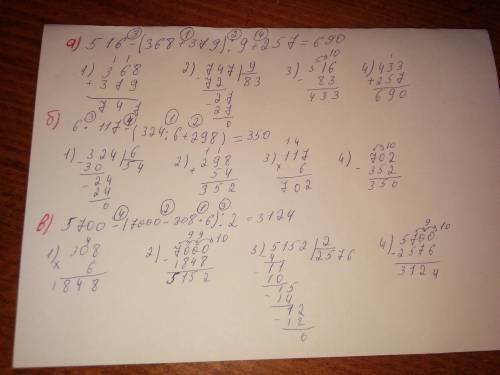 а) 516-(368+379):9+257=690
1) 368
+ 379
747
2) 747 | 9
72 | 83
- 27
27
0
3) 516
- 83
433
4) 433
+ 257
690
б) 6·117-(324:6+298)=350
1) 324 | 6
30 | 54
- 24
24
0
2) 298
+ 54
352
3) 117
× 6
702
4) 702
- 352
350
в) 5700-(7000-308·6):2=3124
1) 308
× 6
1848
2) 7000
- 1848
5152
3) 5152 | 2
4 | 2576
- 11
10
- 15
14
- 12
12
0
4) 5700
- 2576
3124